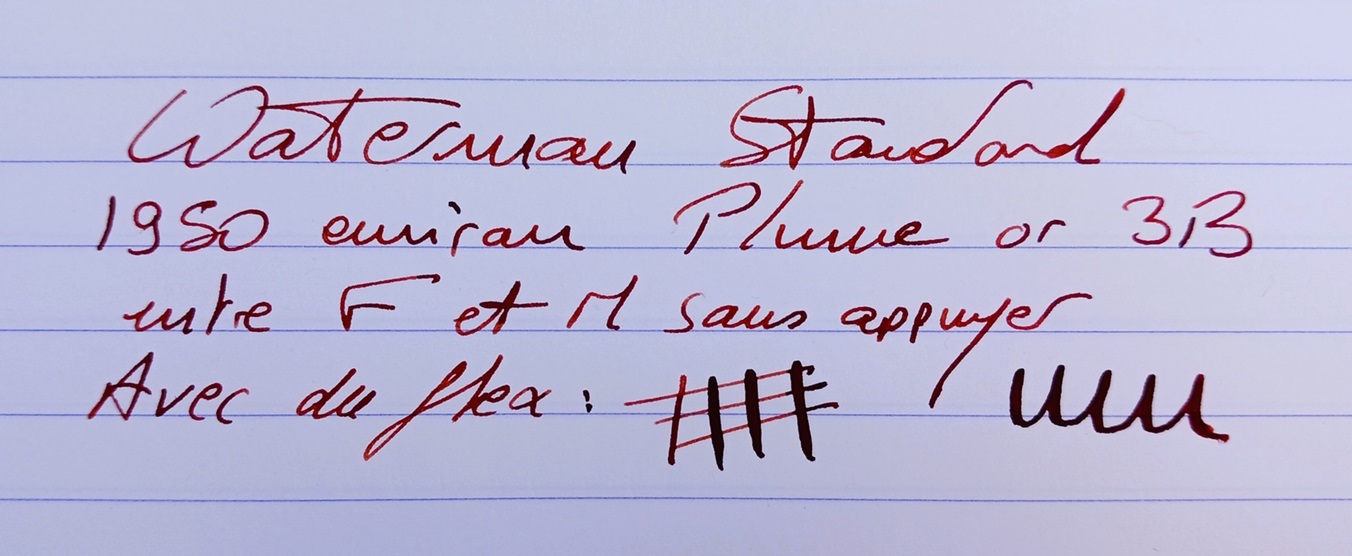 Waterman Standard
1950 environ Plume or 3B
entre F et M sans appuyer
Avec du flex :